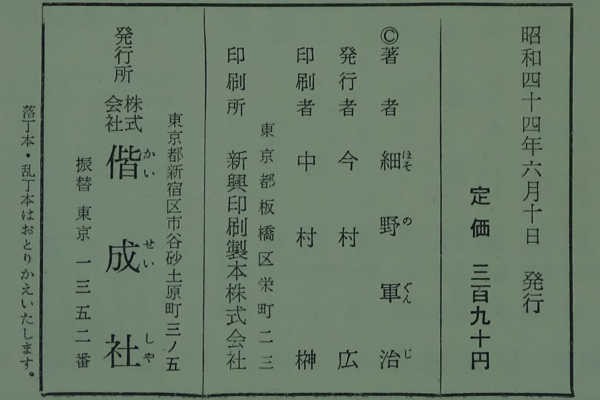 昭和四十四年六月十日　発行
定価　三百九十円
©著者　細野軍治
ほそ　の　ぐん　じ
発行者　今村　広
印刷者　中村　榊
東京都板橋区栄町二三
印刷所　新興印刷製本株式会社
東京都新宿区市谷砂土原町三ノ五
発行所　株式会社　偕成社
かい　せい　しや
振替　東京　一三五二番
落丁本・乱丁本はおとりかえいたします。